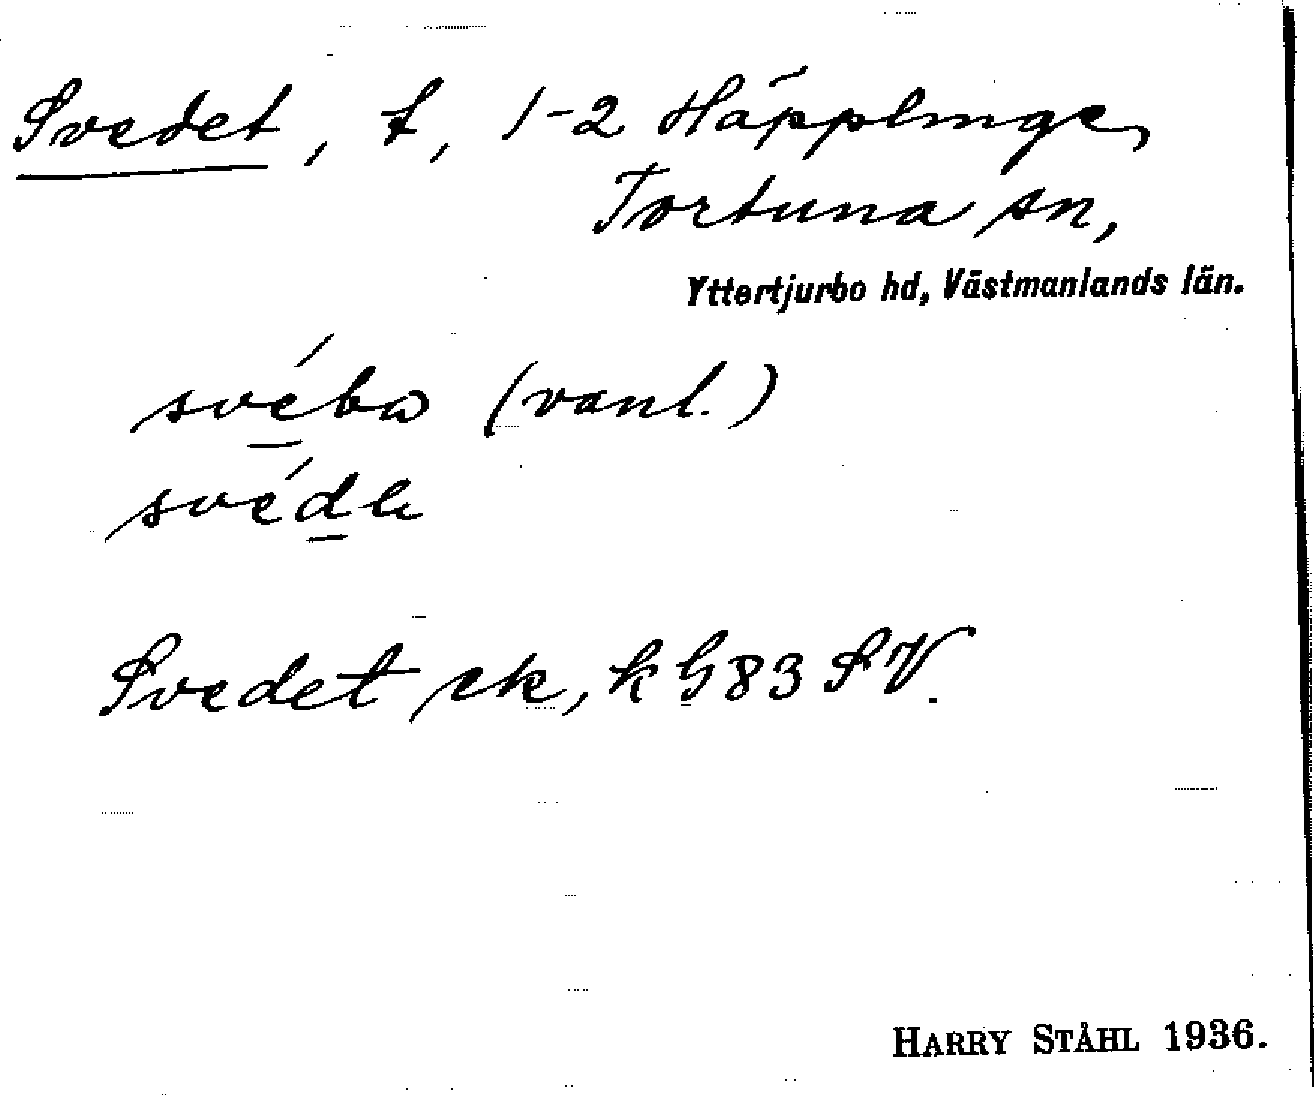 Svedet, t, 1-2 Häpplinge,
Tortuna sn,
Yttertjurbo hd, Västmanlands län.
(vanl.)
Svedet ek, k G83 SV.
HARRY STÅHL 1936.